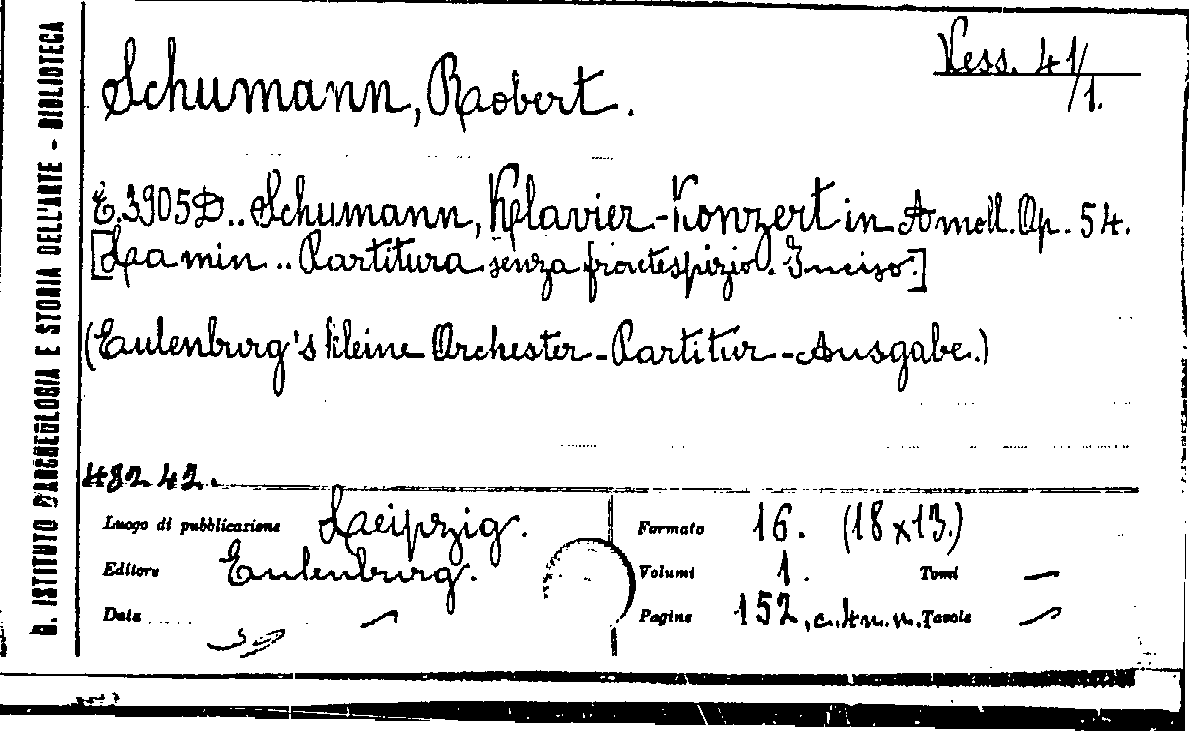 R. ISTITUTO D'ARCHEOLOGIA E STORIA DELL'ARTE - BIBLIOTECA
Vess. 41/1.
Schumann, Robert.
E. 3905 D.. Schumann, Klavier-Konzert in A moll. Op. 54.
[La min.. Partitura senza frontespizio. Inciso.]
(Eulenburg's kleine Orchester-Partitur-Ausgabe.)
48242.
Luogo di pubblicazione Leipzig. Formato 16. (18x13.)
Editore Eulenburg. Volumi 1. Tomi —
Data — Pagine 152, c. 4 n. n. Tavole —